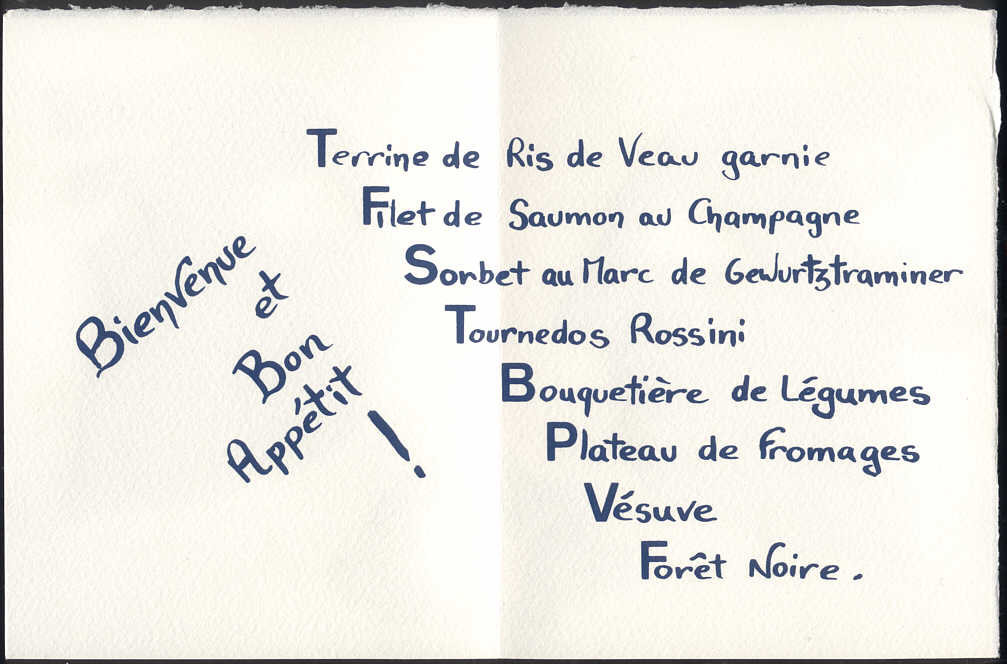 Bienvenue
et
Bon
Appétit !
Terrine de Ris de Veau garnie
Filet de Saumon au Champagne
Sorbet au Marc de Gewurtztraminer
Tournedos Rossini
Bouquetière de Légumes
Plateau de fromages
Vésuve
Forêt Noire.